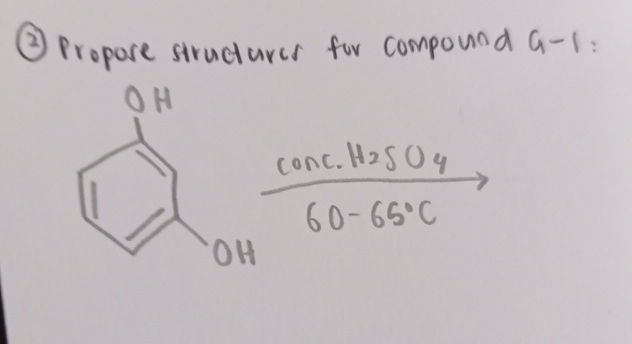 ② Propose structures for compound G-I:
OH
conc. H2SO4
60-65°C
OH